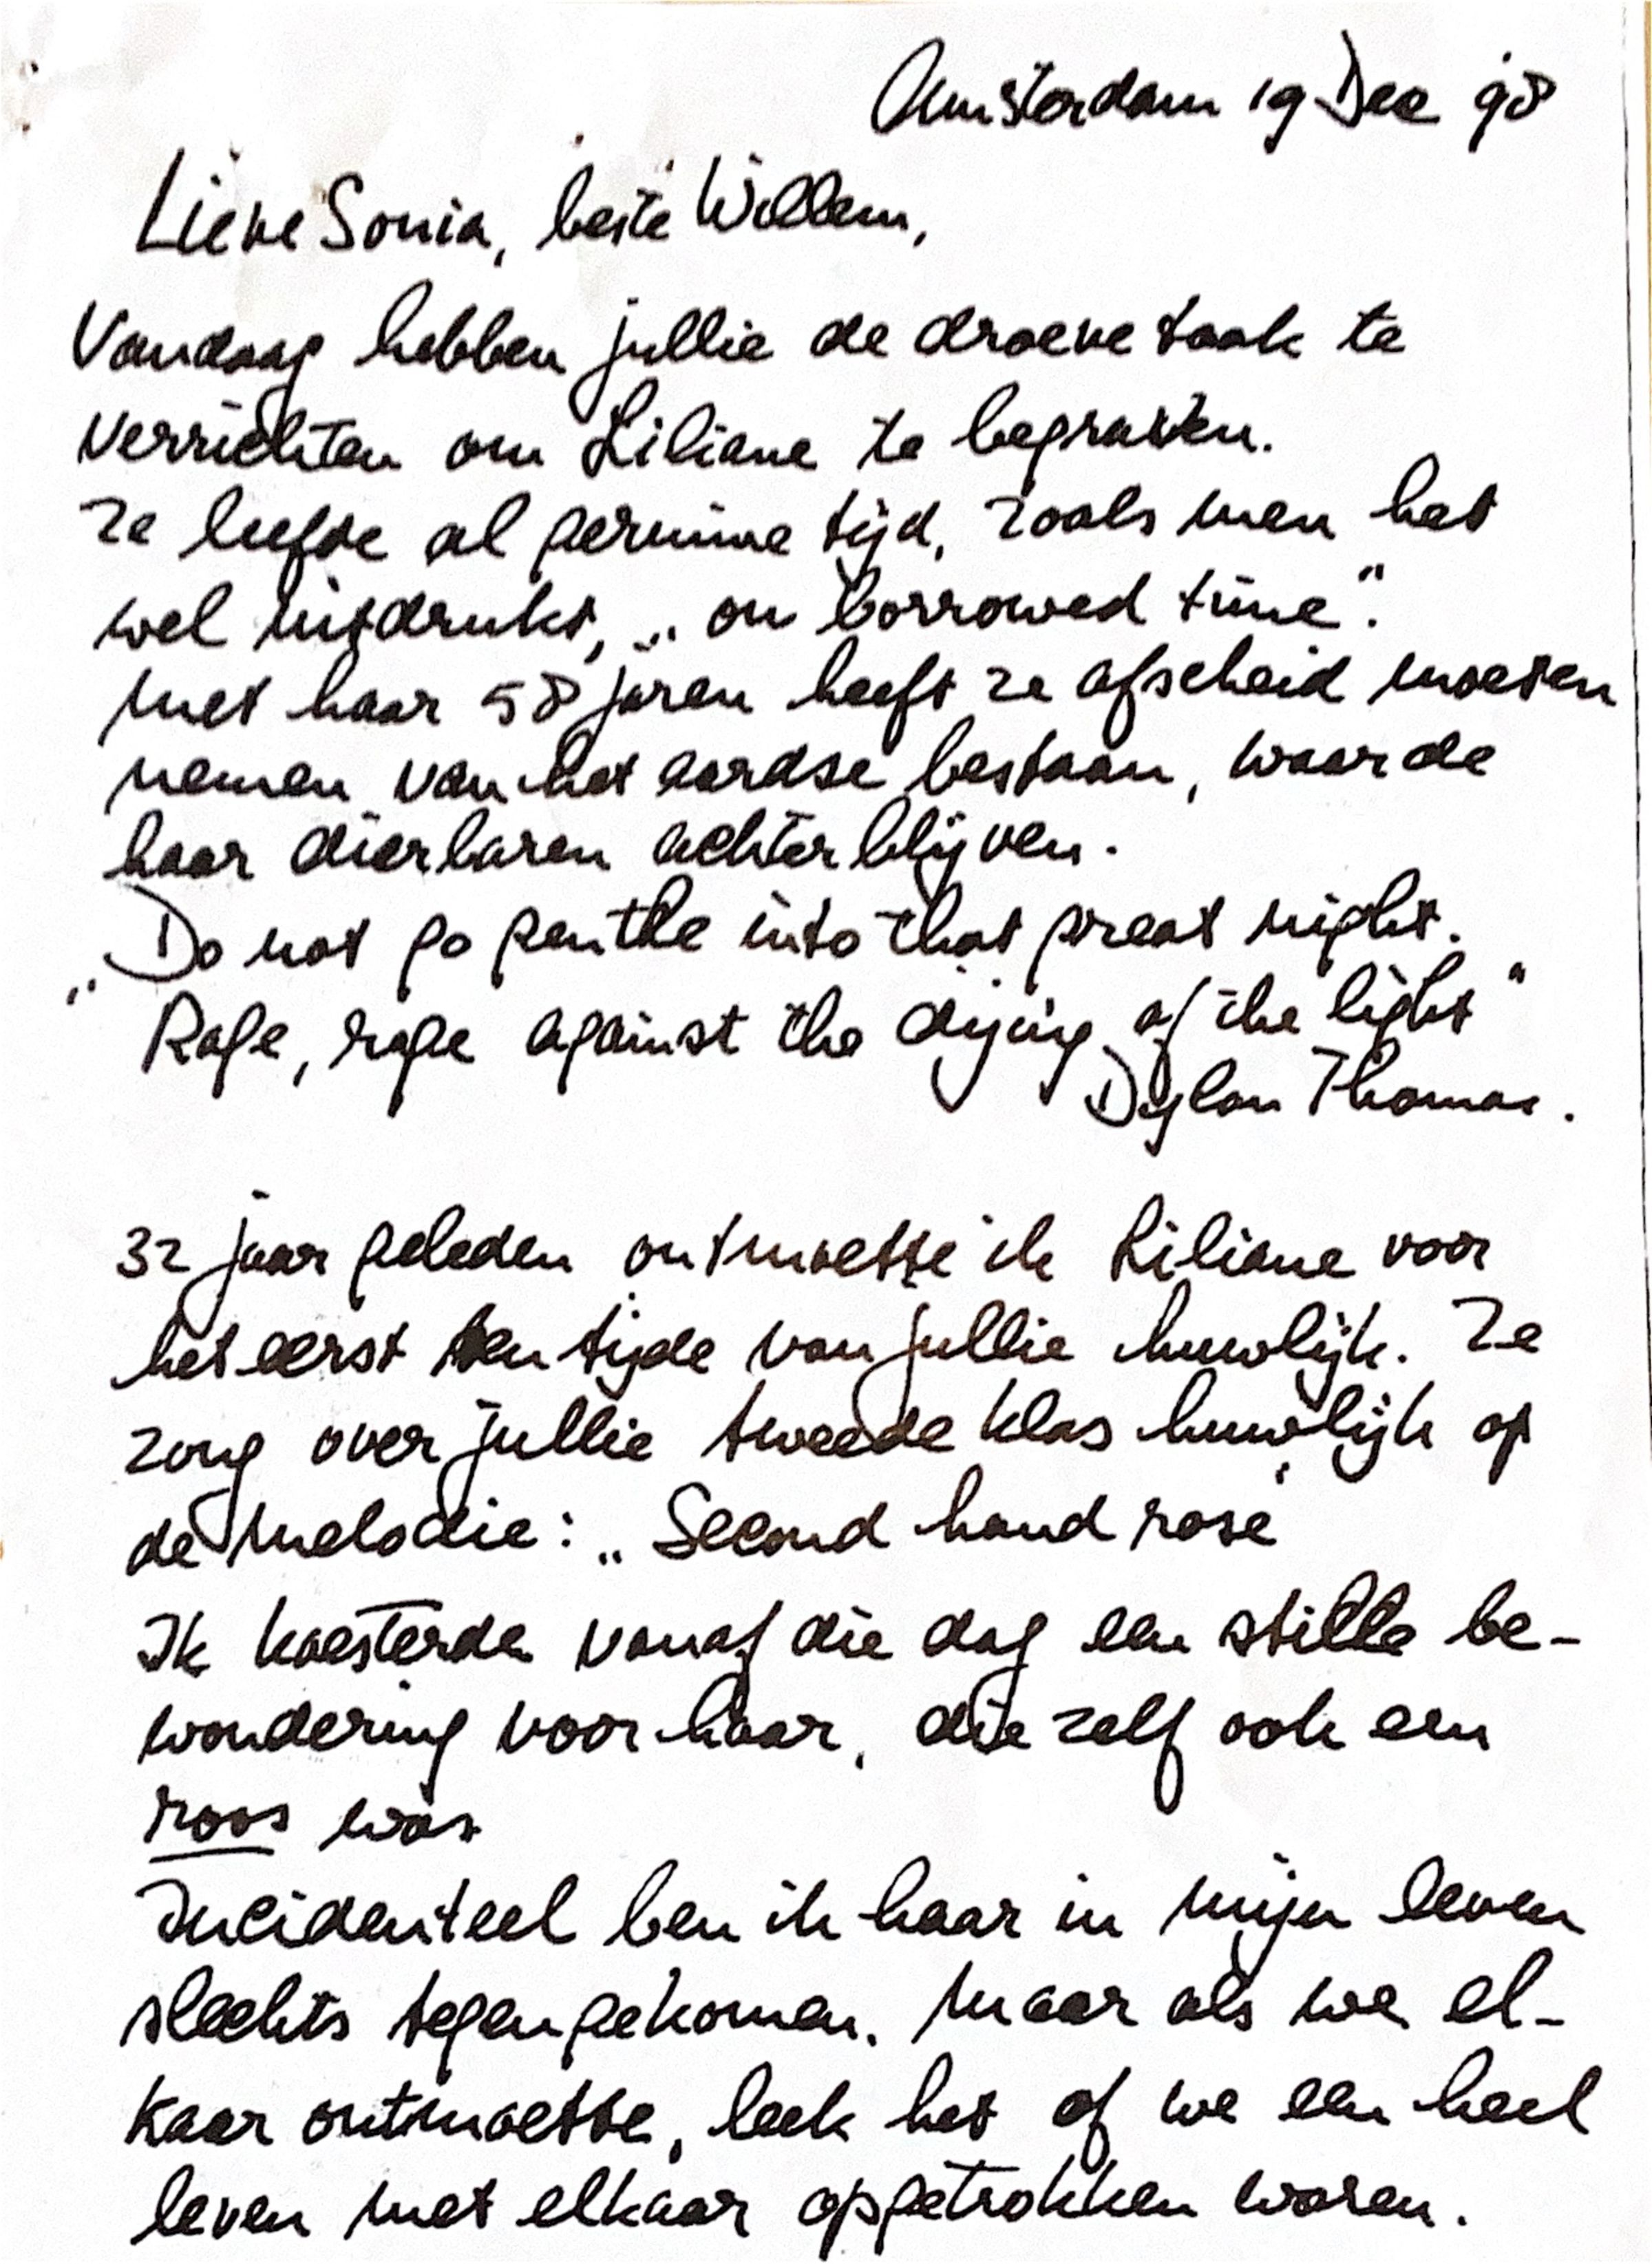 Amsterdam 19 Dec 98
Lieve Sonia, beste Willem,
Vandaag hebben jullie de droeve taak te
verrichten om Liliane te begraven.
Ze leefde al geruime tijd, zoals men het
wel uitdrukt, „on borrowed time".
Met haar 58 jaren heeft ze afscheid moeten
nemen van het aardse bestaan, waar de
haar dierbaren achterblijven.
„Do not go genthe into that great night.
Rage, rage against the dijing of the light"
Dylan Thomas.
32 jaar geleden ontmoette ik Liliane voor
het eerst ten tijde van jullie huwlijk. Ze
zong over jullie tweede klas huwlijk op
de melodie: „Second hand rose"
Ik koesterde vanaf die dag een stille be-
wondering voor haar, die zelf ook een
roos was
Incidenteel ben ik haar in mijn leven
slechts tegengekomen. Maar als we el-
kaar ontmoette, leek het of we een heel
leven met elkaar opgetrokken waren.